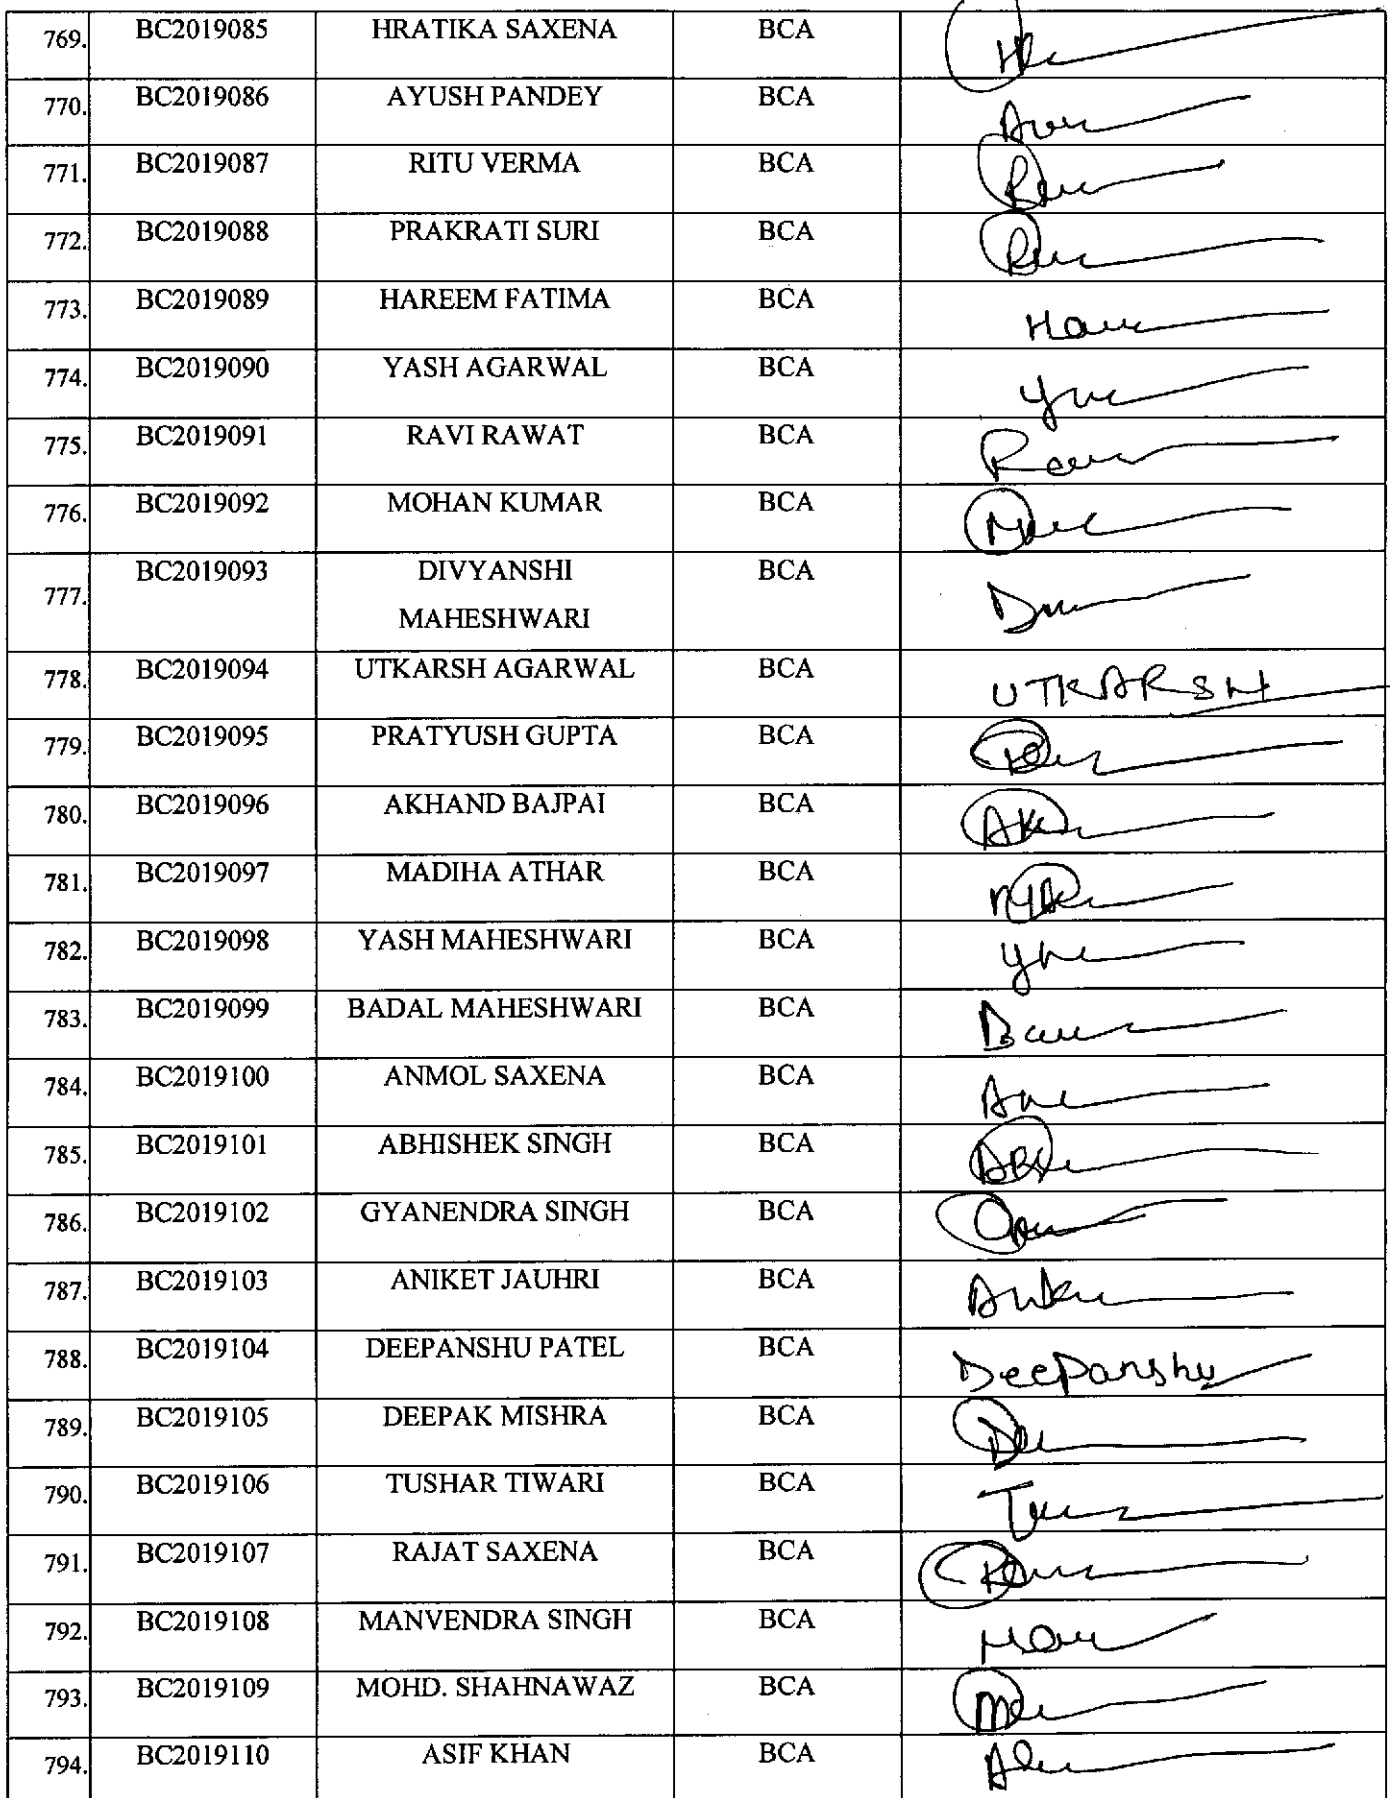 769. BC2019085 HRATIKA SAXENA BCA
770. BC2019086 AYUSH PANDEY BCA
771. BC2019087 RITU VERMA BCA
772. BC2019088 PRAKRATI SURI BCA
773. BC2019089 HAREEM FATIMA BCA
774. BC2019090 YASH AGARWAL BCA
775. BC2019091 RAVI RAWAT BCA
776. BC2019092 MOHAN KUMAR BCA
777. BC2019093 DIVYANSHI BCA
MAHESHWARI
778. BC2019094 UTKARSH AGARWAL BCA UTKARSH
779. BC2019095 PRATYUSH GUPTA BCA
780. BC2019096 AKHAND BAJPAI BCA
781. BC2019097 MADIHA ATHAR BCA
782. BC2019098 YASH MAHESHWARI BCA
783. BC2019099 BADAL MAHESHWARI BCA
784. BC2019100 ANMOL SAXENA BCA
785. BC2019101 ABHISHEK SINGH BCA
786. BC2019102 GYANENDRA SINGH BCA
787. BC2019103 ANIKET JAUHRI BCA
788. BC2019104 DEEPANSHU PATEL BCA DeePanshu
789. BC2019105 DEEPAK MISHRA BCA
790. BC2019106 TUSHAR TIWARI BCA
791. BC2019107 RAJAT SAXENA BCA
792. BC2019108 MANVENDRA SINGH BCA
793. BC2019109 MOHD. SHAHNAWAZ BCA
794. BC2019110 ASIF KHAN BCA